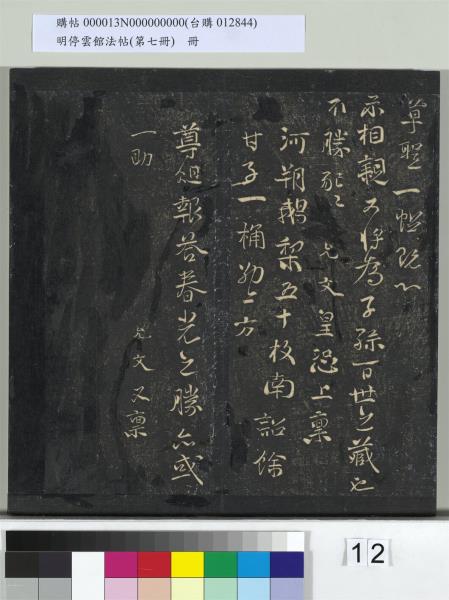 購帖 000013N000000000(台購 012844)
明停雲館法帖(第七冊) 冊
草聖一帖既以
示相親又將為子孫百世之藏也
不勝死罪 允文皇恐上稟
河朔鵝梨五十枚南詔餘
甘子一桶
尊俎報答春光之勝亦或
一助
允文又稟
12